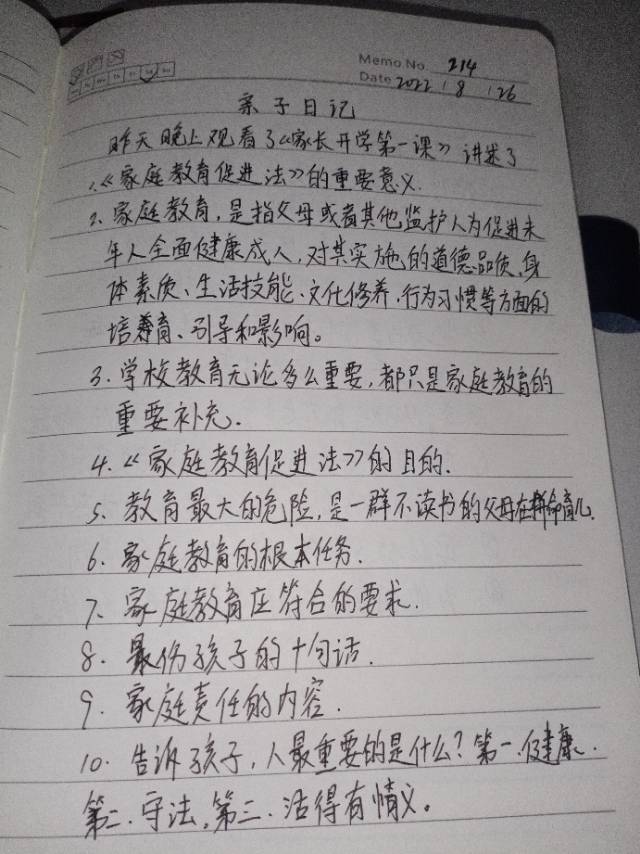 Memo No. 214
Date 2022 / 8 / 26
亲子日记
昨天晚上观看了《家长开学第一课》讲述了
1.《家庭教育促进法》的重要意义.
2、家庭教育,是指父母或者其他监护人为促进未
年人全面健康成人,对其实施的道德品质、身
体素质、生活技能、文化修养、行为习惯等方面的
培养育、引导和影响。
3.学校教育无论多么重要,都只是家庭教育的
重要补充.
4.《家庭教育促进法》的目的.
5、教育最大的危险,是一群不读书的父母在拼命育儿.
6.家庭教育的根本任务.
7、家庭教育应符合的要求.
8.最伤孩子的十句话.
9.家庭责任的内容.
10.告诉孩子,人最重要的是什么?第一.健康.
第二.守法。第三.活得有情义。